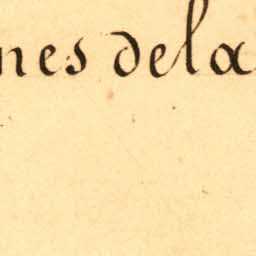 nes dela